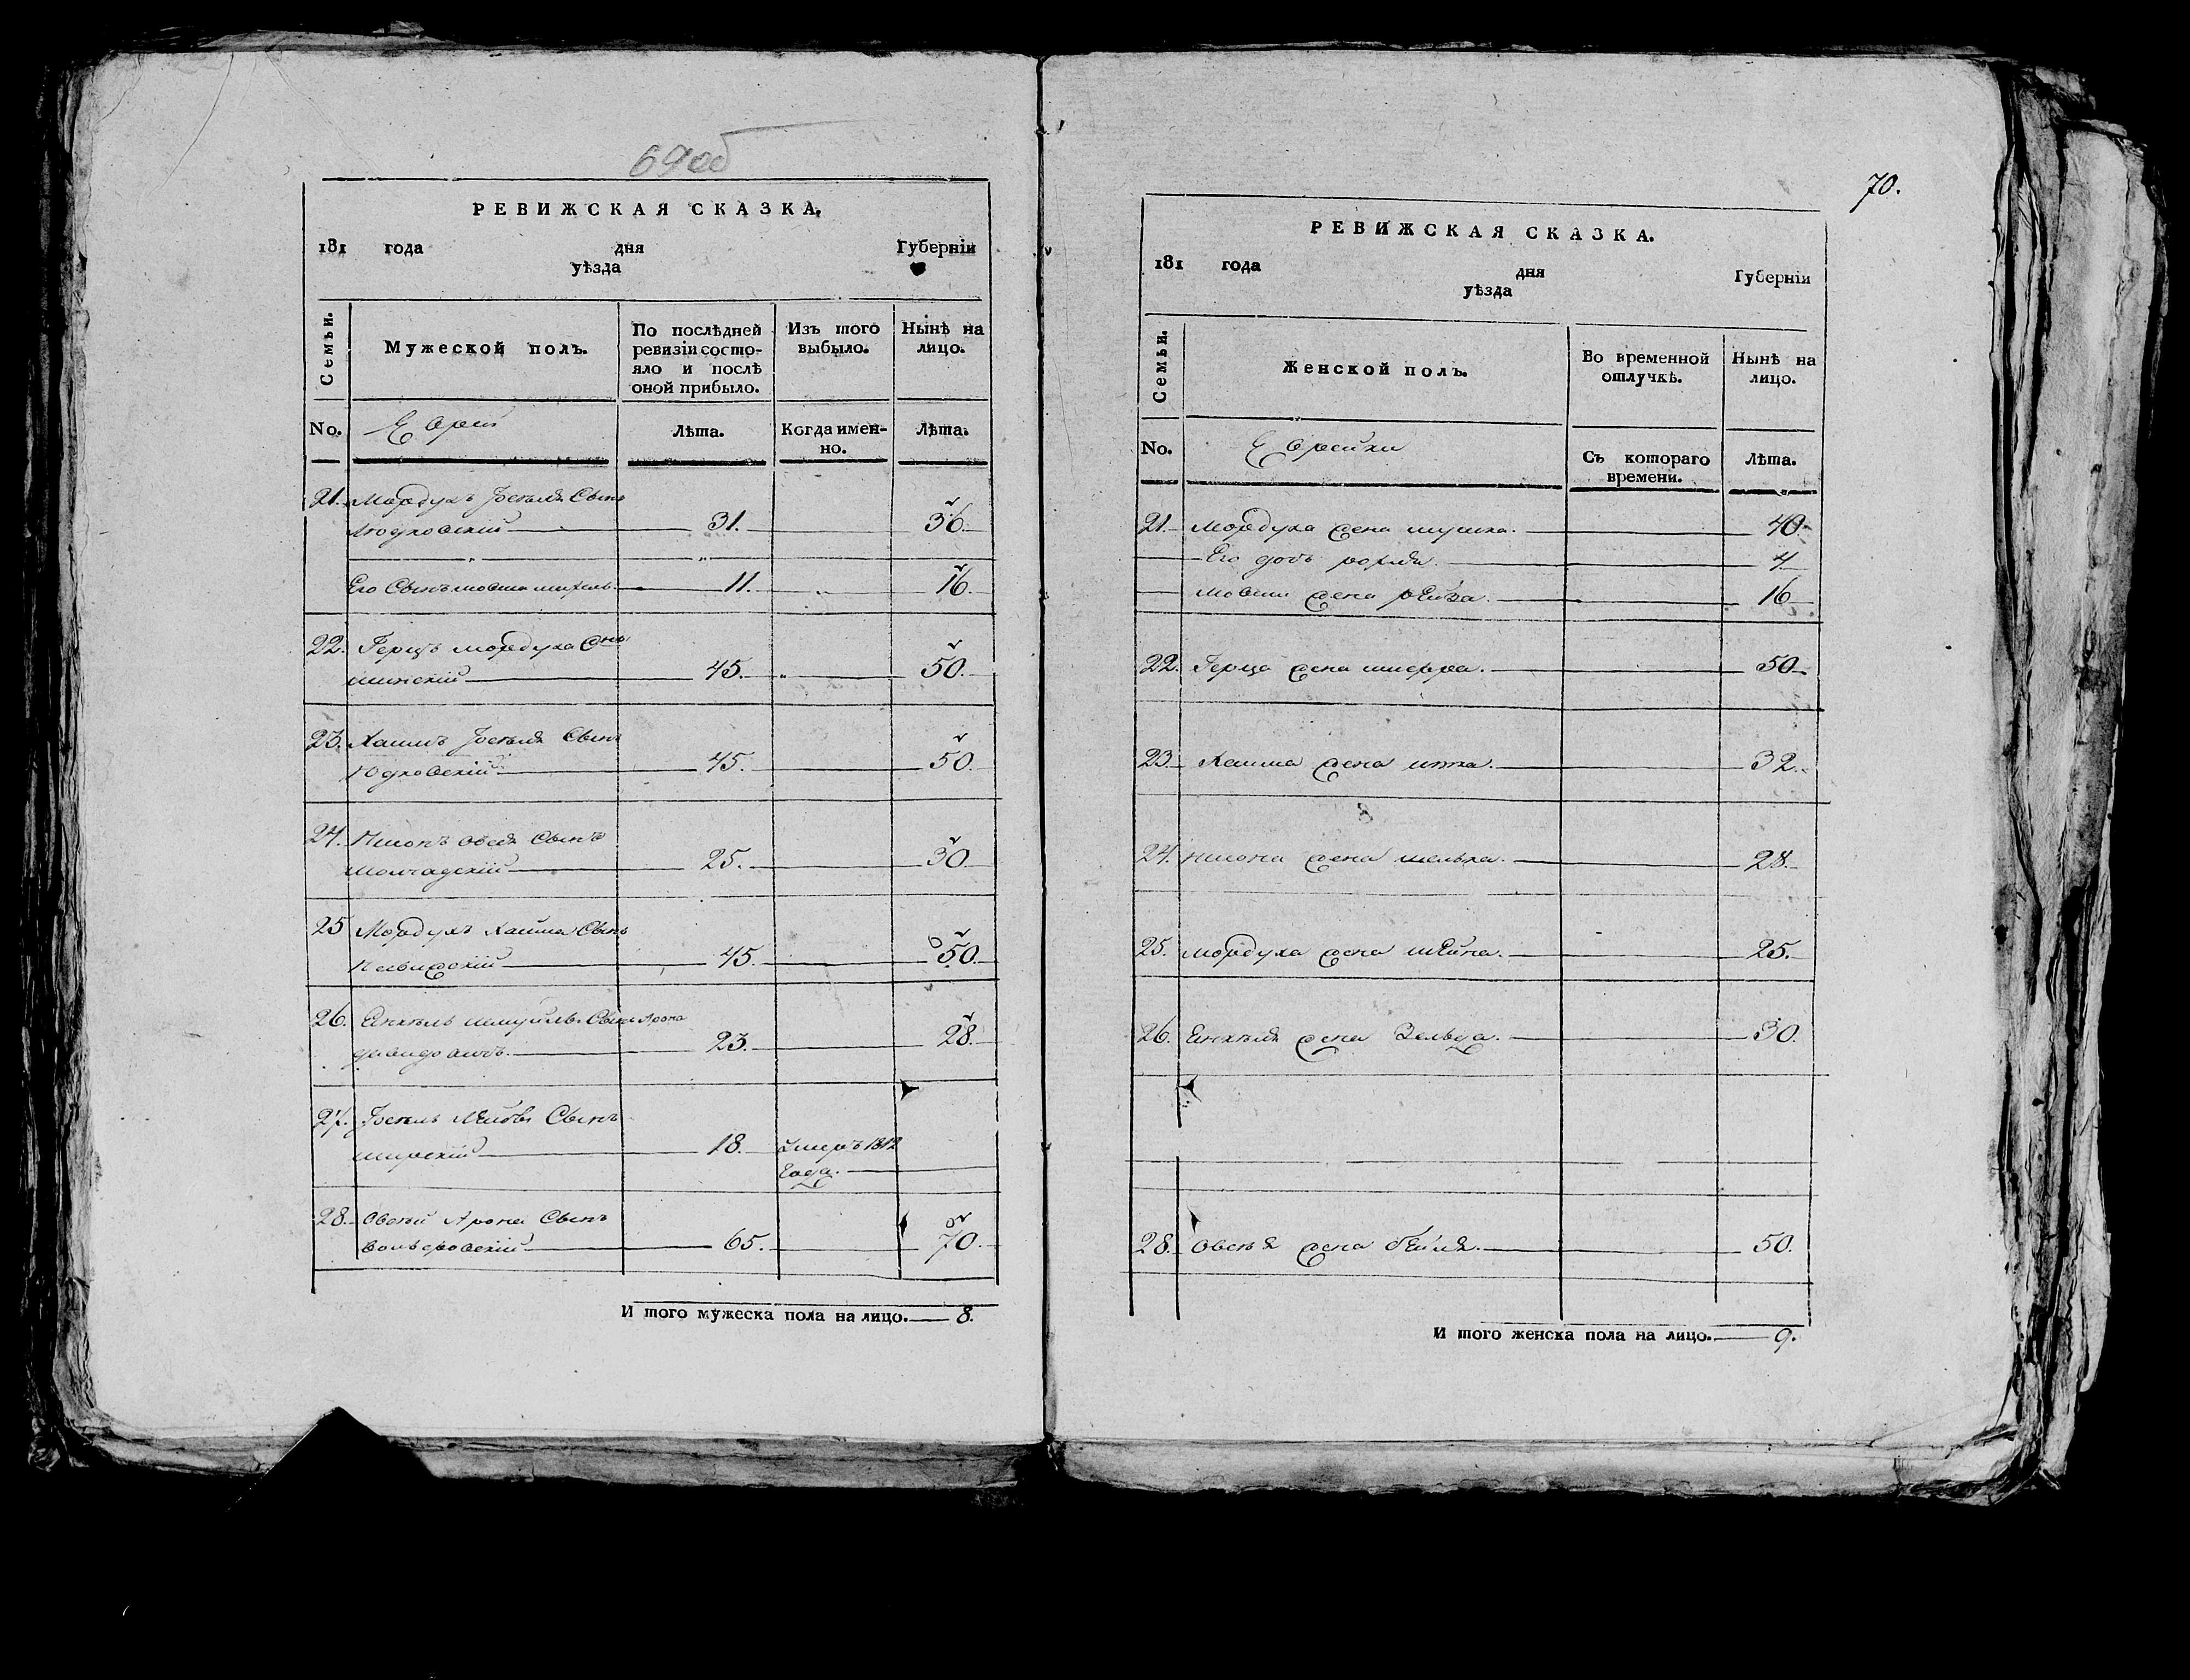 69об
РЕВИЖСКАЯ СКАЗКА.
181 года дня Губерніи
уѣзда
Семьи. Мужеской полъ. По послѣдней ревизіи состояло и послѣ оной прибыло. Изъ того выбыло. Нынѣ на лицо.
No. Евреи Лѣта. Когда именно. Лѣта.
21. Мордухъ Іоселя Сынъ
31. 36.
Его Сынъ мовша 11. 16.
22. Герцъ мордуха Снъ
минскій 45. 50.
23. Хаимъ Іоселя Сынъ
45. 50.
24. Сынъ
молчадскій 25. 30.
25 Мордухъ Хаима Сынъ
несвижскій 45. 50.
26. Енкель шмуйлы Сынъ Арона
давидовичъ. 23. 28.
27. Іосель Лейбы Сынъ
мирскій 18. Умеръ 1812
Года.
28. Овсей Арона Сынъ
65. 70.
И того мужеска пола на лицо. 8.
70.
РЕВИЖСКАЯ СКАЗКА.
181 года дня Губерніи
уѣзда
Семьи. Женской полъ. Во временной отлучкѣ. Нынѣ на лицо.
No. Еврейки Съ котораго времени. Лѣта.
21. Мордуха жена мушка. 40.
Его дочь 4
Мовши жена рейза. 16
22. Герца жена 50
23. Хаима жена итка. 32.
24. жена 28.
25. мордуха жена шейна. 25.
26. Енкеля жена Зельда. 30.
28. Овсея жена бейля. 50.
И того женска пола на лицо. 9.